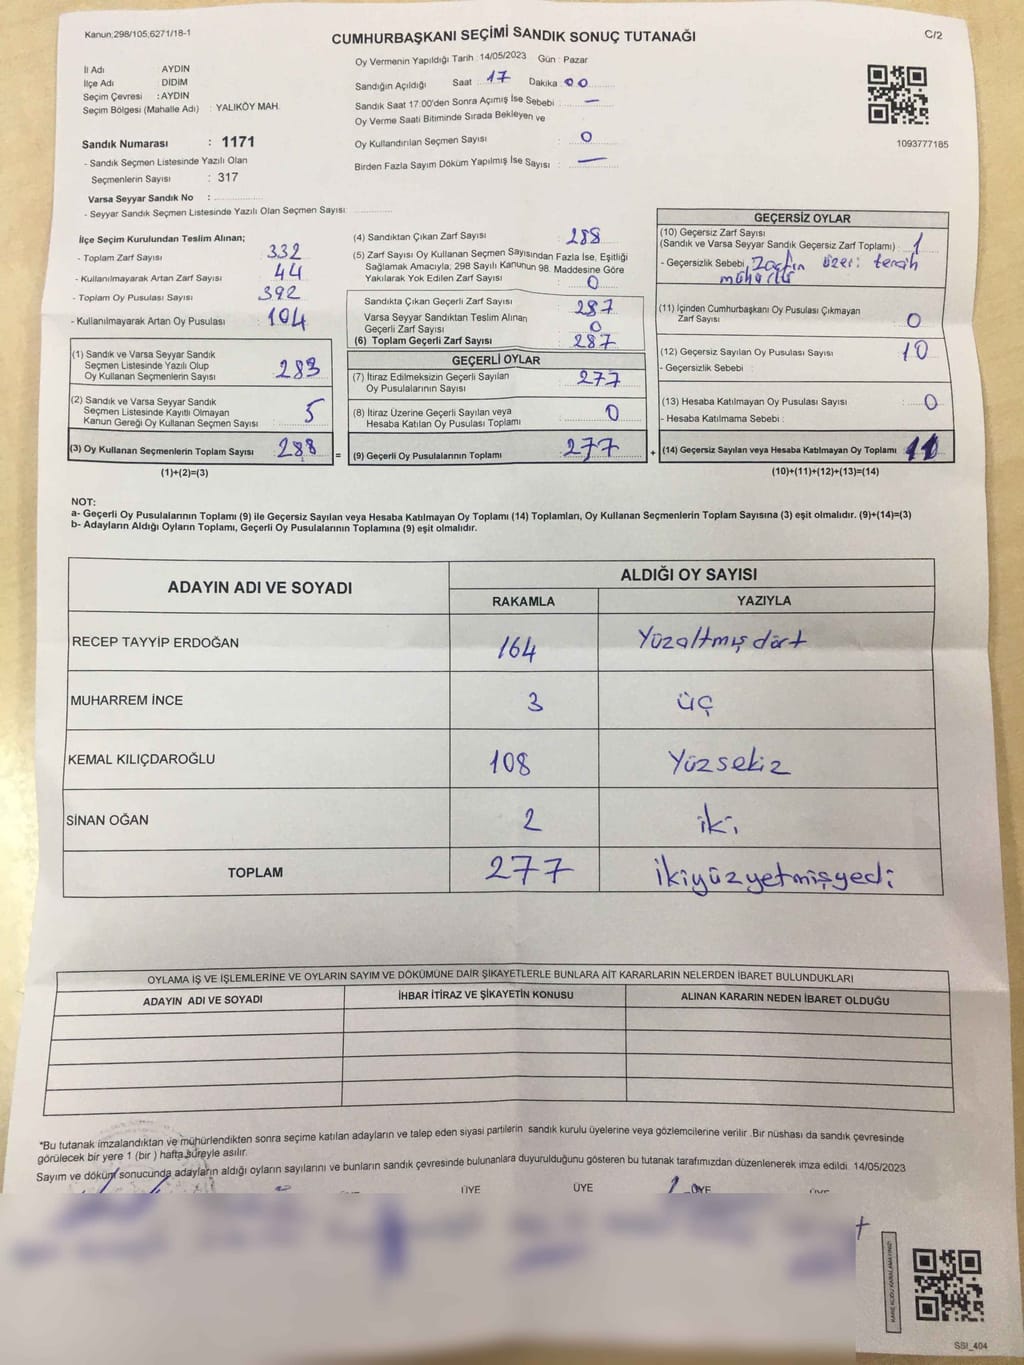 Kanun;298/105;6271/18-1
CUMHURBAŞKANI SEÇİMİ SANDIK SONUÇ TUTANAĞI
C/2
İl Adı AYDIN
İlçe Adı DİDİM
Seçim Çevresi : AYDIN
Seçim Bölgesi (Mahalle Adı) : YALIKÖY MAH.
Oy Vermenin Yapıldığı Tarih : 14/05/2023 Gün : Pazar
Sandığın Açıldığı Saat : 17 Dakika : 00
Sandık Saat 17:00'den Sonra Açımış İse Sebebi : —
Oy Verme Saati Bitiminde Sırada Bekleyen ve
Oy Kullandırılan Seçmen Sayısı : 0
Birden Fazla Sayım Döküm Yapılmış İse Sayısı : —
1093777185
Sandık Numarası : 1171
- Sandık Seçmen Listesinde Yazılı Olan
Seçmenlerin Sayısı : 317
Varsa Seyyar Sandık No :
- Seyyar Sandık Seçmen Listesinde Yazılı Olan Seçmen Sayısı:
İlçe Seçim Kurulundan Teslim Alınan;
- Toplam Zarf Sayısı : 332
- Kullanılmayarak Artan Zarf Sayısı : 44
- Toplam Oy Pusulası Sayısı : 392
- Kullanılmayarak Artan Oy Pusulası : 104
(1) Sandık ve Varsa Seyyar Sandık
Seçmen Listesinde Yazılı Olup
Oy Kullanan Seçmenlerin Sayısı : 283
(2) Sandık ve Varsa Seyyar Sandık
Seçmen Listesinde Kayıtlı Olmayan
Kanun Gereği Oy Kullanan Seçmen Sayısı : 5
(3) Oy Kullanan Seçmenlerin Toplam Sayısı : 288
(1)+(2)=(3)
=
(4) Sandıktan Çıkan Zarf Sayısı : 288
(5) Zarf Sayısı Oy Kullanan Seçmen Sayısından Fazla İse, Eşitliği
Sağlamak Amacıyla; 298 Sayılı Kanunun 98. Maddesine Göre
Yakılarak Yok Edilen Zarf Sayısı : 0
Sandıkta Çıkan Geçerli Zarf Sayısı : 287
Varsa Seyyar Sandıktan Teslim Alınan
Geçerli Zarf Sayısı : 0
(6) Toplam Geçerli Zarf Sayısı : 287
GEÇERLİ OYLAR
(7) İtiraz Edilmeksizin Geçerli Sayılan
Oy Pusulalarının Sayısı : 277
(8) İtiraz Üzerine Geçerli Sayılan veya
Hesaba Katılan Oy Pusulası Toplamı : 0
(9) Geçerli Oy Pusulalarının Toplamı : 277
+
GEÇERSİZ OYLAR
(10) Geçersiz Zarf Sayısı
(Sandık ve Varsa Seyyar Sandık Geçersiz Zarf Toplamı) : 1
- Geçersizlik Sebebi : Zarfın üzeri tercih
(11) İçinden Cumhurbaşkanı Oy Pusulası Çıkmayan
Zarf Sayısı : 0
(12) Geçersiz Sayılan Oy Pusulası Sayısı : 10
- Geçersizlik Sebebi :
(13) Hesaba Katılmayan Oy Pusulası Sayısı : 0
- Hesaba Katılmama Sebebi :
(14) Geçersiz Sayılan veya Hesaba Katılmayan Oy Toplamı : 11
(10)+(11)+(12)+(13)=(14)
NOT:
a- Geçerli Oy Pusulalarının Toplamı (9) ile Geçersiz Sayılan veya Hesaba Katılmayan Oy Toplamı (14) Toplamları, Oy Kullanan Seçmenlerin Toplam Sayısına (3) eşit olmalıdır. (9)+(14)=(3)
b- Adayların Aldığı Oyların Toplamı, Geçerli Oy Pusulalarının Toplamına (9) eşit olmalıdır.
ADAYIN ADI VE SOYADI
ALDIĞI OY SAYISI
RAKAMLA YAZIYLA
RECEP TAYYİP ERDOĞAN 164 Yüzaltmışdört
MUHARREM İNCE 3 üç
KEMAL KILIÇDAROĞLU 108 Yüzsekiz
SİNAN OĞAN 2 iki
TOPLAM 277 ikiyüzyetmişyedi
OYLAMA İŞ VE İŞLEMLERİNE VE OYLARIN SAYIM VE DÖKÜMÜNE DAİR ŞİKAYETLERLE BUNLARA AİT KARARLARIN NELERDEN İBARET BULUNDUKLARI
ADAYIN ADI VE SOYADI İHBAR İTİRAZ VE ŞİKAYETİN KONUSU ALINAN KARARIN NEDEN İBARET OLDUĞU
*Bu tutanak imzalandıktan ve mühürlendikten sonra seçime katılan adayların ve talep eden siyasi partilerin sandık kurulu üyelerine veya gözlemcilerine verilir .Bir nüshası da sandık çevresinde
görülecek bir yere 1 (bir ) hafta süreyle asılır.
Sayım ve döküm sonucunda adayların aldığı oyların sayılarını ve bunların sandık çevresinde bulunanlara duyurulduğunu gösteren bu tutanak tarafımızdan düzenlenerek imza edildi. 14/05/2023
ÜYE ÜYE ÜYE
KARE KODU KARALAMAYINIZ!
SSI_404